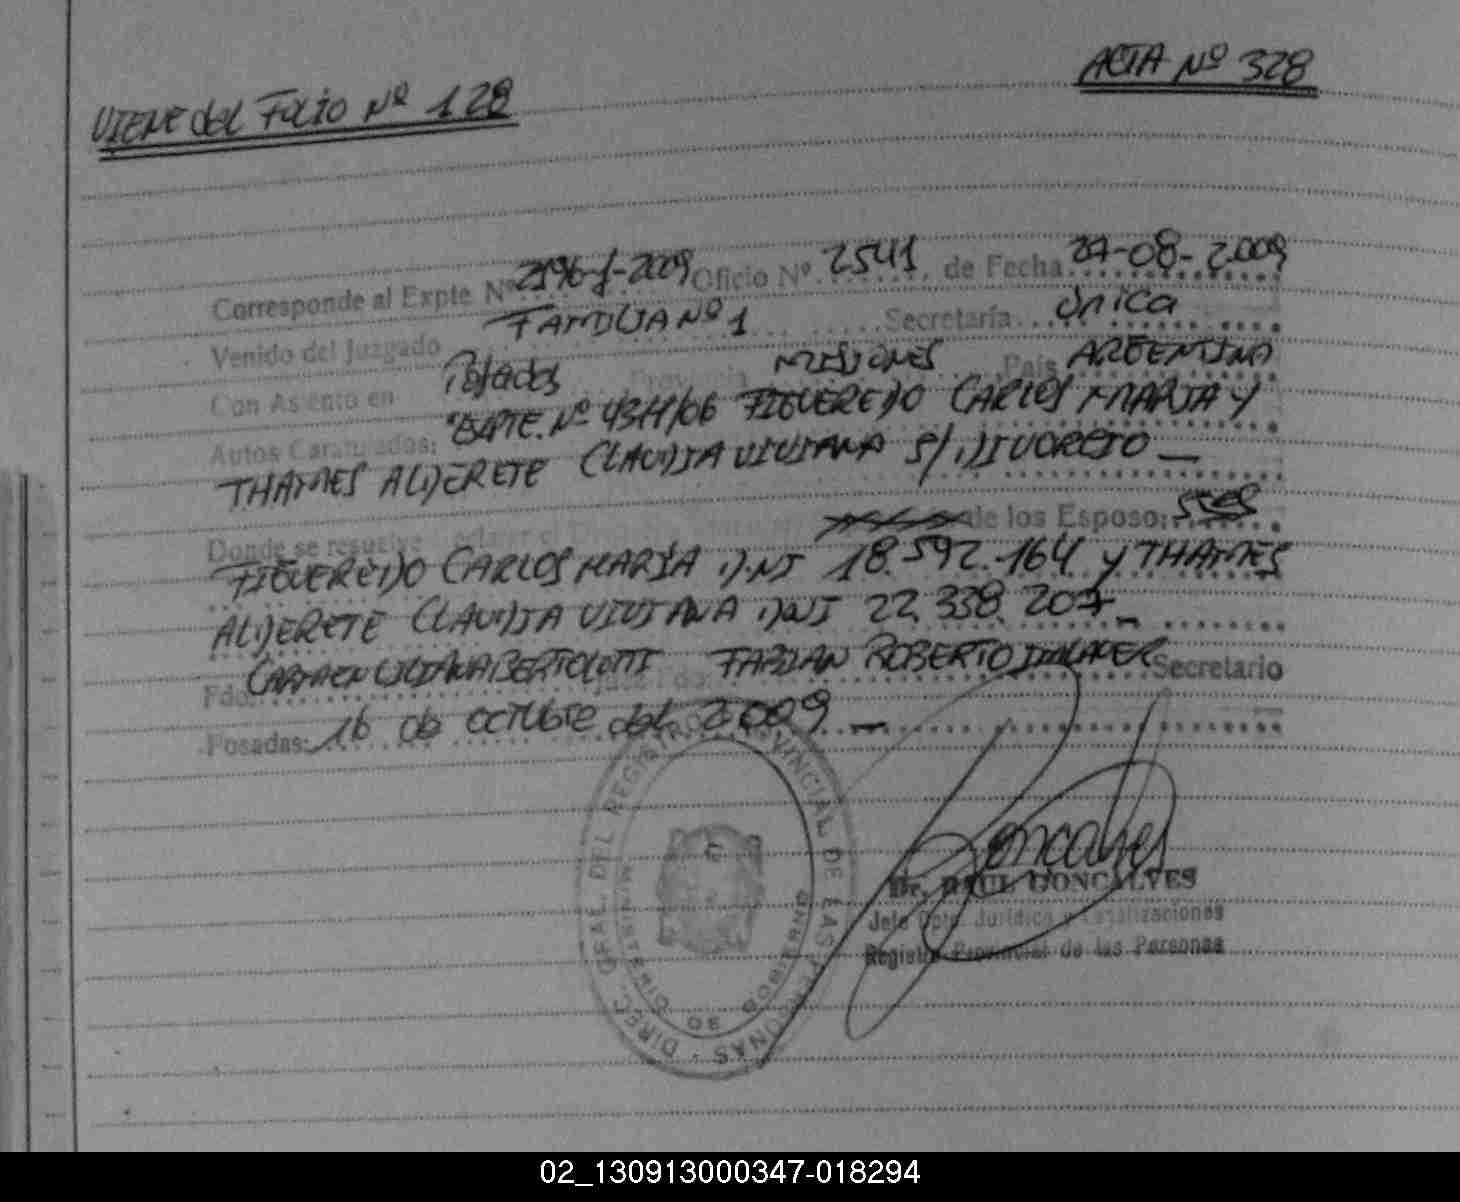 VIENE del Folio Nº 128
ACTA Nº 328
Corresponde al Expte Nº 2196-f-2009 Oficio Nº 2541, de Fecha 27-08-2.009
Venido del Juzgado FAMILIA Nº 1 Secretaría única
Con Asiento en Posadas Provincia MISIONES País ARGENTINA
Autos Caratulados: "EXPTE. Nº FIGUEREDO CARLOS MARIA Y
THAMES ALDERETE CLAUDIA VIVIANA S/ DIVORCIO _
Donde se resuelve Declarar el de los Esposo:
FIGUEREDO CARLOS MARÍA DNI 18.592.164 y THAMES
ALDERETE CLAUDIA VIVIANA DNI 22.338.207_
Fdo: CARMEN LILIANA BERTOLOTTI FABIAN ROBERTO Secretario
Posadas: 16 de octubre del 2.009 _
DIREC. GRAL. DEL REGISTRO PROVINCIAL DE LAS PERSONAS
MINISTERIO DE GOBIERNO
Goncalves
Dr. RAUL GONCALVES
Jefe Dpto. Jurídica y Legalizaciones
Registro Provincial de las Personas
02_130913000347-018294